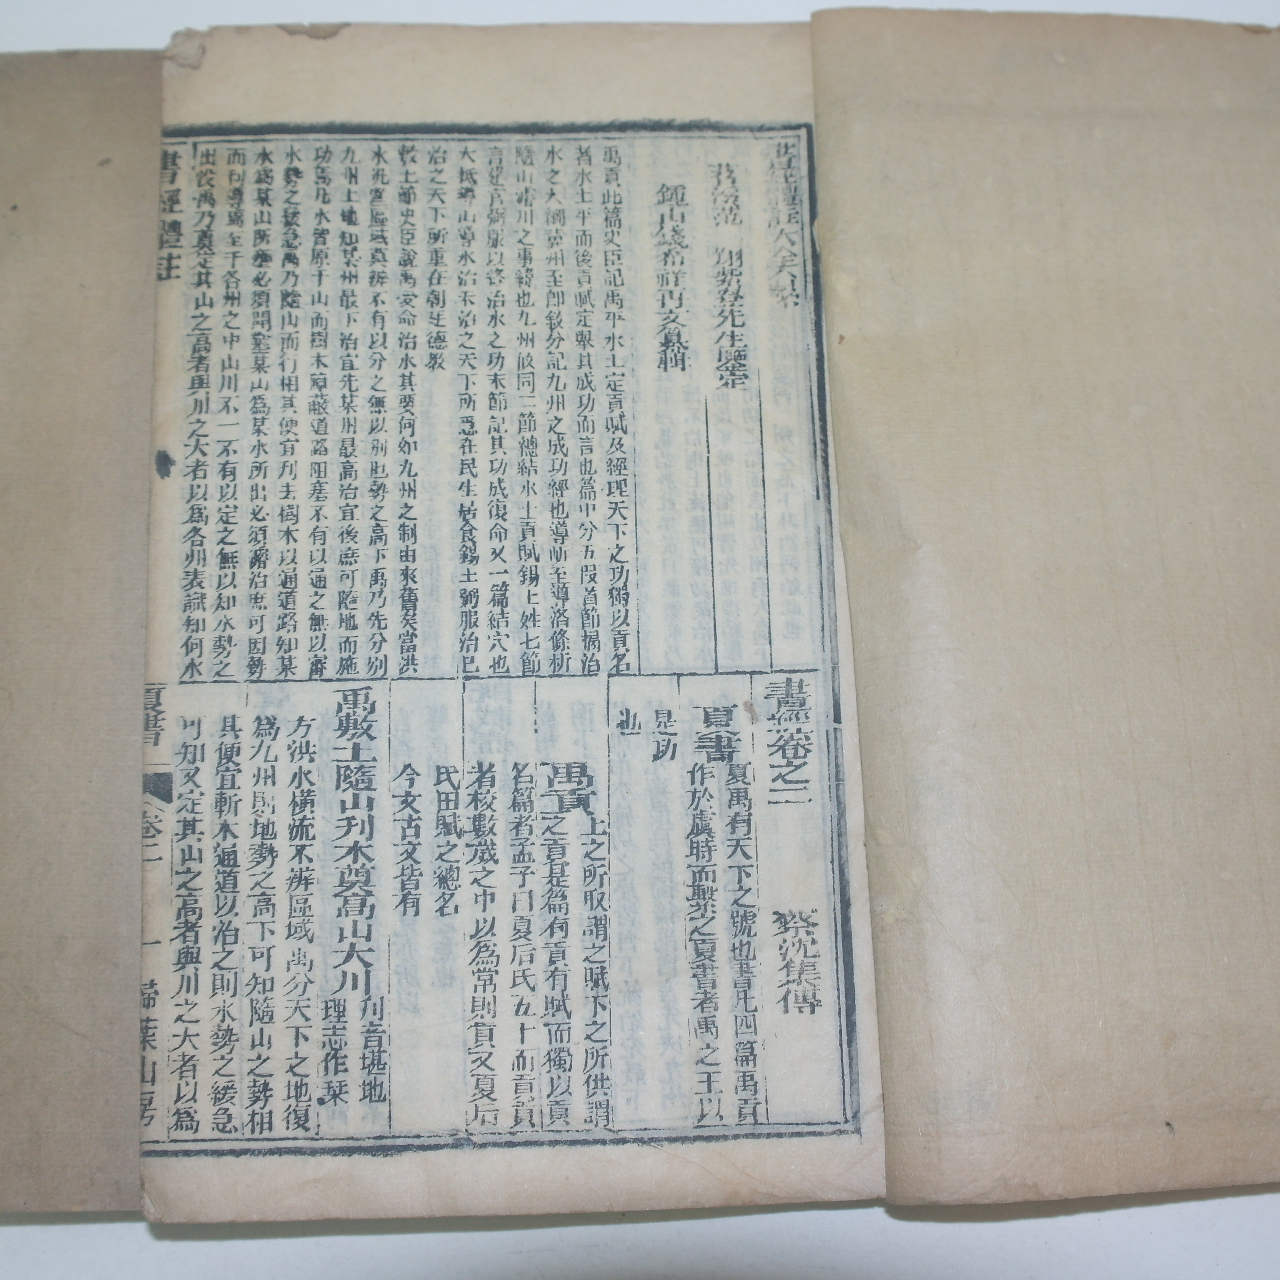 書經體註大全合參
苕溪范翔紫登先生鑒定
鍾山錢希祥再文纂輯
禹貢此篇史臣記禹平水土定貢賦及經理天下之功獨以貢名
者水土平而後貢賦定舉其成功而言也篇中分五段首節揭治
水之大綱冀州至即敘分記九州之成功經也導岍至導洛條析
隨山濬川之事緯也九州攸同二節總結水土貢賦錫土姓七節
言建官弼服以終治水之功末節記其功成復命又一篇結穴也
大抵導山導水治未治之天下所急在民生居食錫土弼服治已
治之天下所重在朝廷德教
敷土節史臣說禹受命治水其要何如九州之制由來舊矣當洪
水洗蕩區域莫辨不有以分之無以別也勢之高下禹乃先分別
九州土地知某州最下治宜先某州最高治宜後庶可隨地而施
功焉凡水皆原于山而樹木障蔽道路阻塞不有以通之無以審
水勢之緩急禹乃隨山而行相其便宜刋去樹木以通道路知某
水為某山所壅必須開鑿某山為某水所出必須濬治庶可因勢
而利導焉至于各州之中山川不一不有以定之無以知水勢之
出役禹乃奠定其山之高者與川之大者以為各州表識知何水
書經卷之二
蔡沈集傳
夏書
夏禹有天下之號也書凡四篇禹貢
作於虞時而繫之夏書者禹之王以
是功
也
禹貢
上之所取謂之賦下之所供謂
之貢是篇有貢有賦而獨以貢
名篇者孟子曰夏后氏五十而貢貢
者校數歲之中以為常則貢又夏后
氏田賦之總名
今文古文皆有
禹敷土隨山刋木奠高山大川
刋音堪地
理志作栞
方洪水橫流不辨區域禹分天下之地復
為九州則地勢之高下可知隨山之勢相
其便宜斬木通道以治之則水勢之緩急
可知又定其山之高者與川之大者以為
書經體註
夏書
卷二
一
掃葉山房